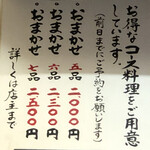 お得なコース料理をご用意
しています。
(前日までにご予約をお願いします)
・おまかせ 五品 二〇〇〇円
・おまかせ 六品 二三〇〇円
・おまかせ 七品 二五〇〇円
詳しくは店主まで